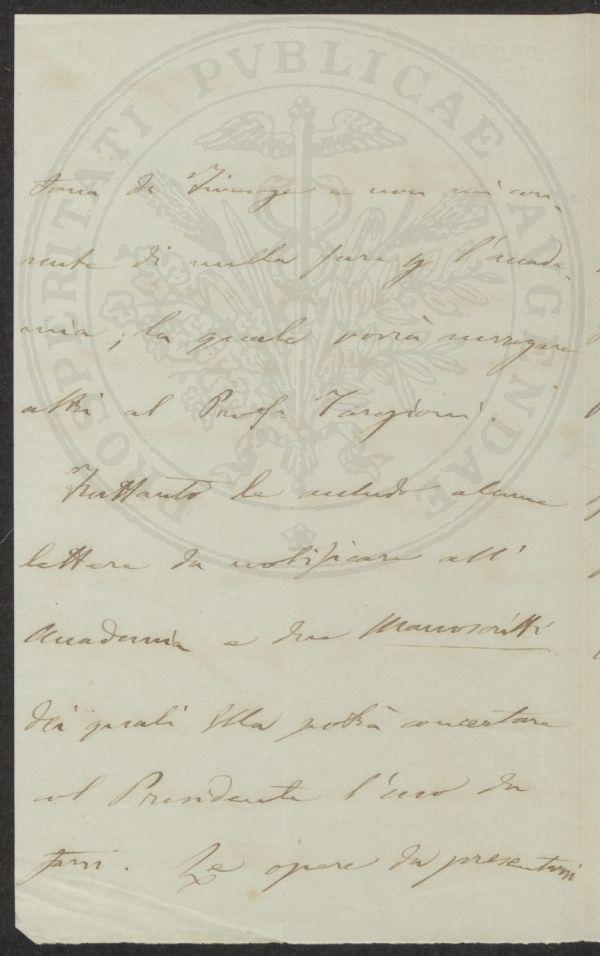 PROSPERITATI PVBLICAE AVGENDAE
tana da Firenze e non mi con-
sente di nulla fare p l'accade-
mia; la quale vorrà surrogare
altri al Prof. Targioni.
Frattanto le acludo alcune
lettere da notificare all'
Accademia e due Manoscritti
dei quali Ella potrà concertare
col Presidente l'uso da
farsi. Le opere da presentarsi